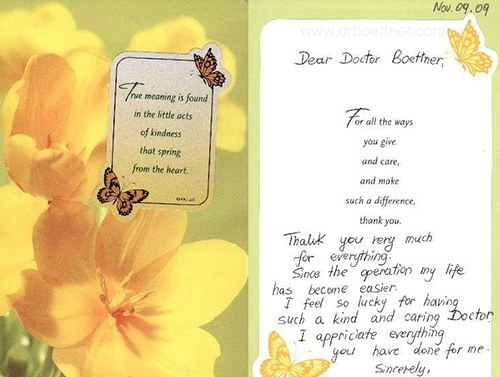 True meaning is found
in the little acts
of kindness
that spring
from the heart.
Nov. 09. 09
www.drboettner.com
Dear Doctor Boettner,
For all the ways
you give
and care,
and make
such a difference,
thank you.
Thank you very much
for everything.
Since the operation my life
has become easier.
I feel so lucky for having
such a kind and caring Doctor.
I appriciate everything
you have done for me.
Sincerely,